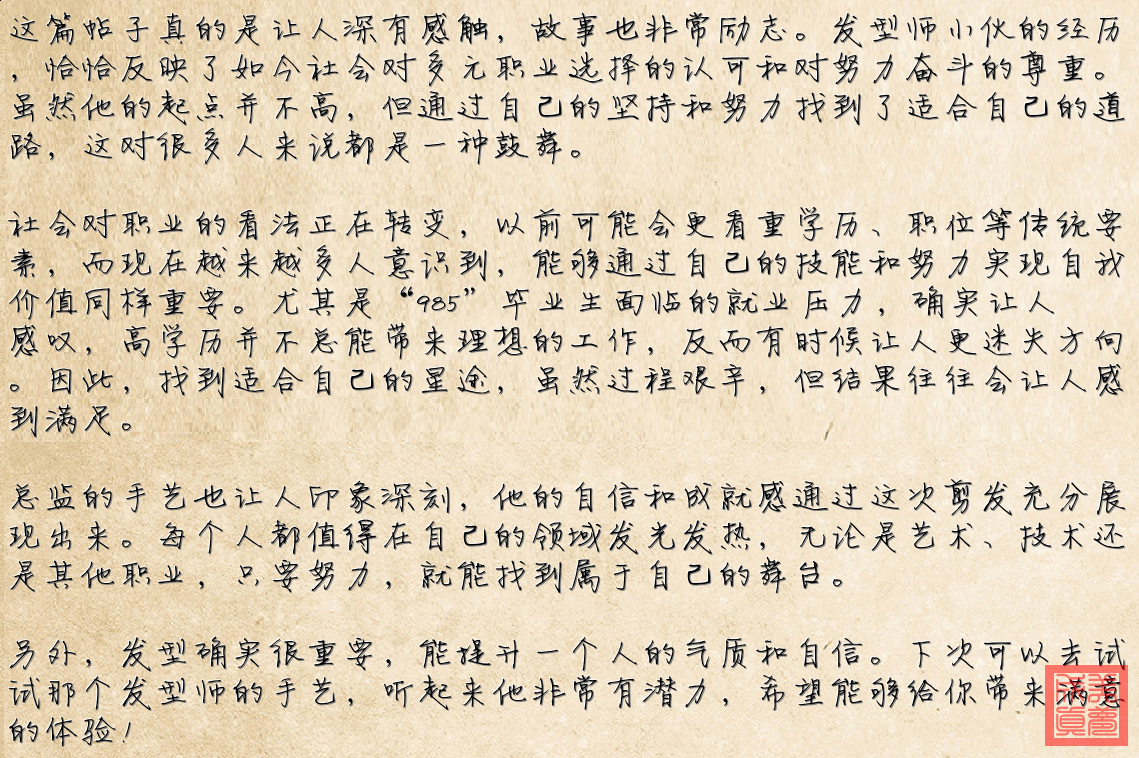 这篇帖子真的是让人深有感触，故事也非常励志。发型师小伙的经历
，恰恰反映了如今社会对多元职业选择的认可和对努力奋斗的尊重。
虽然他的起点并不高，但通过自己的坚持和努力找到了适合自己的道
路，这对很多人来说都是一种鼓舞。
社会对职业的看法正在转变，以前可能会更看重学历、职位等传统要
素，而现在越来越多人意识到，能够通过自己的技能和努力实现自我
价值同样重要。尤其是“985”毕业生面临的就业压力，确实让人
感叹，高学历并不总能带来理想的工作，反而有时候让人更迷失方向
。因此，找到适合自己的星途，虽然过程艰辛，但结果往往会让人感
到满足。
总监的手艺也让人印象深刻，他的自信和成就感通过这次剪发充分展
现出来。每个人都值得在自己的领域发光发热，无论是艺术、技术还
是其他职业，只要努力，就能找到属于自己的舞台。
另外，发型确实很重要，能提升一个人的气质和自信。下次可以去试
试那个发型师的手艺，听起来他非常有潜力，希望能够给你带来满意
的体验！